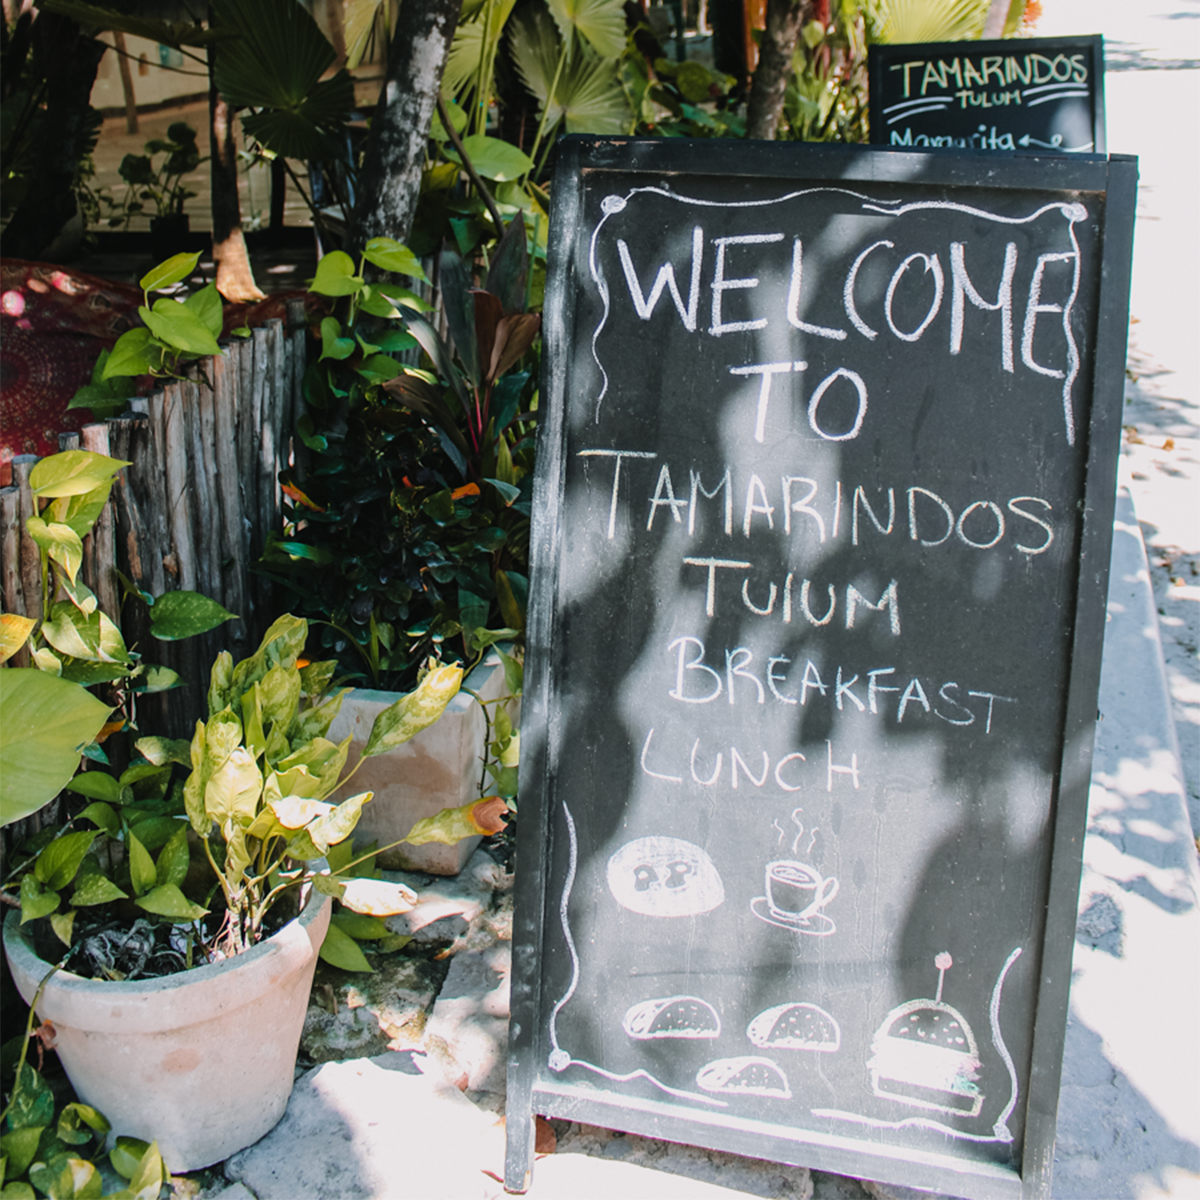 TAMARINDOS
TULUM
Margarita
WELCOME
TO
TAMARINDOS
TulUM
BREAKFAST
LUNCH